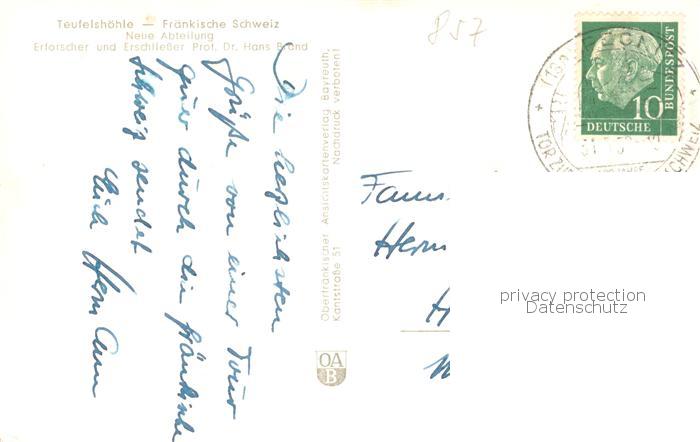 Teufelshöhle — Fränkische Schweiz
Neue Abteilung
Erforscher und Erschließer Prof. Dr. Hans Brand
857
Die herzlichsten
Grüße von einer Tour
quer durch die fränkische
Schweiz sendet
Oberfränkischer Ansichtskartenverlag Bayreuth,
Kantstraße 51 Nachdruck verboten!
OA
B
10
DEUTSCHE
BUNDESPOST
TOR ZUR
SCHWEIZ
Fam
Herrn
H
privacy protection
Datenschutz